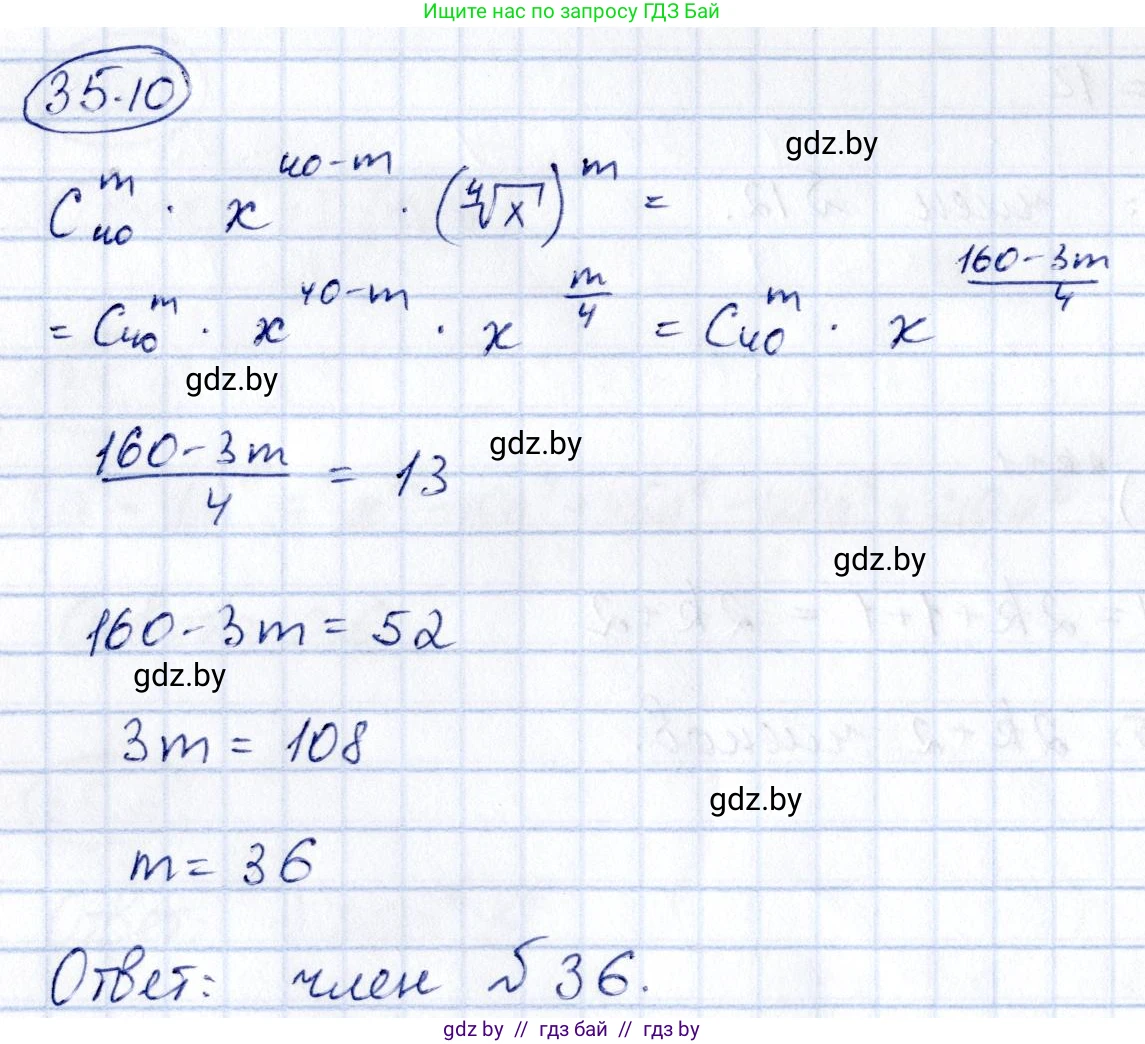 Ищите нас по запросу ГДЗ Бай
35.10
gdz.by
C₄₀ᵐ · x^(40-m) · (⁴√x)^m =
= C₄₀ᵐ · x^(40-m) · x^(m/4) = C₄₀ᵐ · x^((160-3m)/4)
gdz.by
gdz.by
(160-3m)/4 = 13
gdz.by
160-3m = 52
gdz.by
3m = 108
gdz.by
m = 36
Ответ: член №36.
gdz by // гдз бай // гдз by